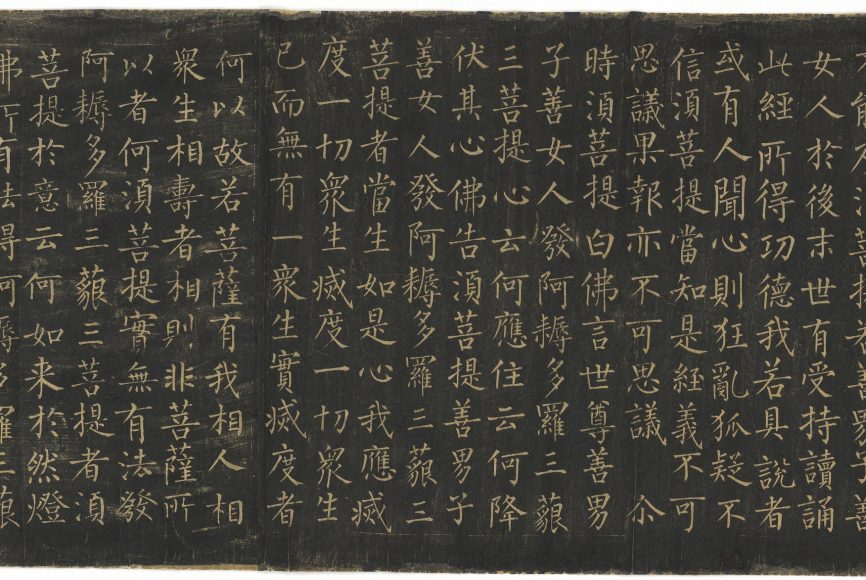 不能及湏菩提若善男子善
女人於後末世有受持讀誦
此經所得功德我若具說者
或有人聞心則狂亂狐疑不
信湏菩提當知是經義不可
思議果報亦不可思議 尒
時湏菩提白佛言世尊善男
子善女人發阿耨多羅三藐
三菩提心云何應住云何降
伏其心佛告湏菩提善男子
善女人發阿耨多羅三藐三
菩提者當生如是心我應滅
度一切衆生滅度一切衆生
已而無有一衆生實滅度者
何以故若菩薩有我相人相
衆生相壽者相則非菩薩所
以者何湏菩提實無有法發
阿耨多羅三藐三菩提者湏
菩提於意云何如来於然燈
佛所有法得阿耨多羅三藐